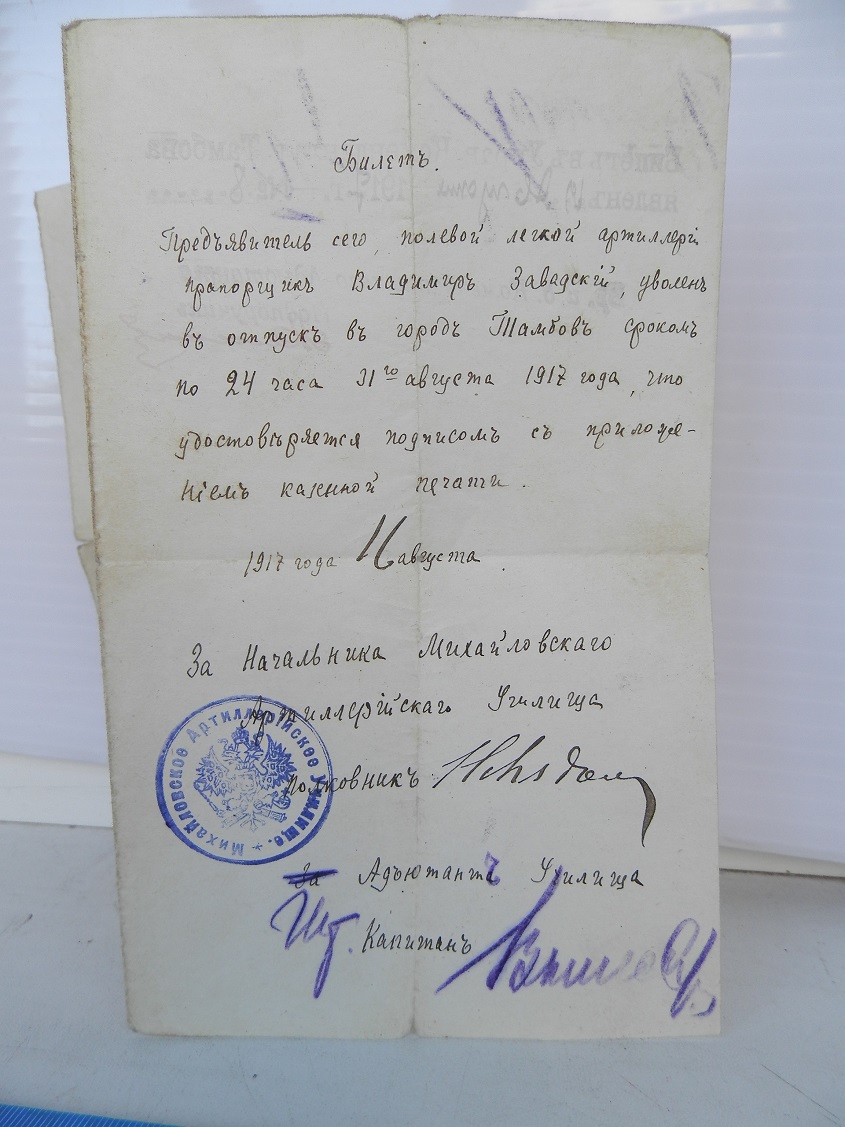 Билетъ.
Предъявитель сего, полевой легкой артиллерiи
прапорщикъ Владимиръ Завадскiй, уволенъ
въ отпускъ въ городъ Тамбовъ срокомъ
по 24 часа 31го августа 1917 года, что
удостовѣряется подписомъ съ приложе-
нiемъ казенной печати.
1917 года 16 августа
За Начальника Михайловскаго
Артиллерiйскаго Училища
Полковникъ
За Адъютантъ Училища
Шт. Капитанъ
Михайловское Артиллерiйское Училище.